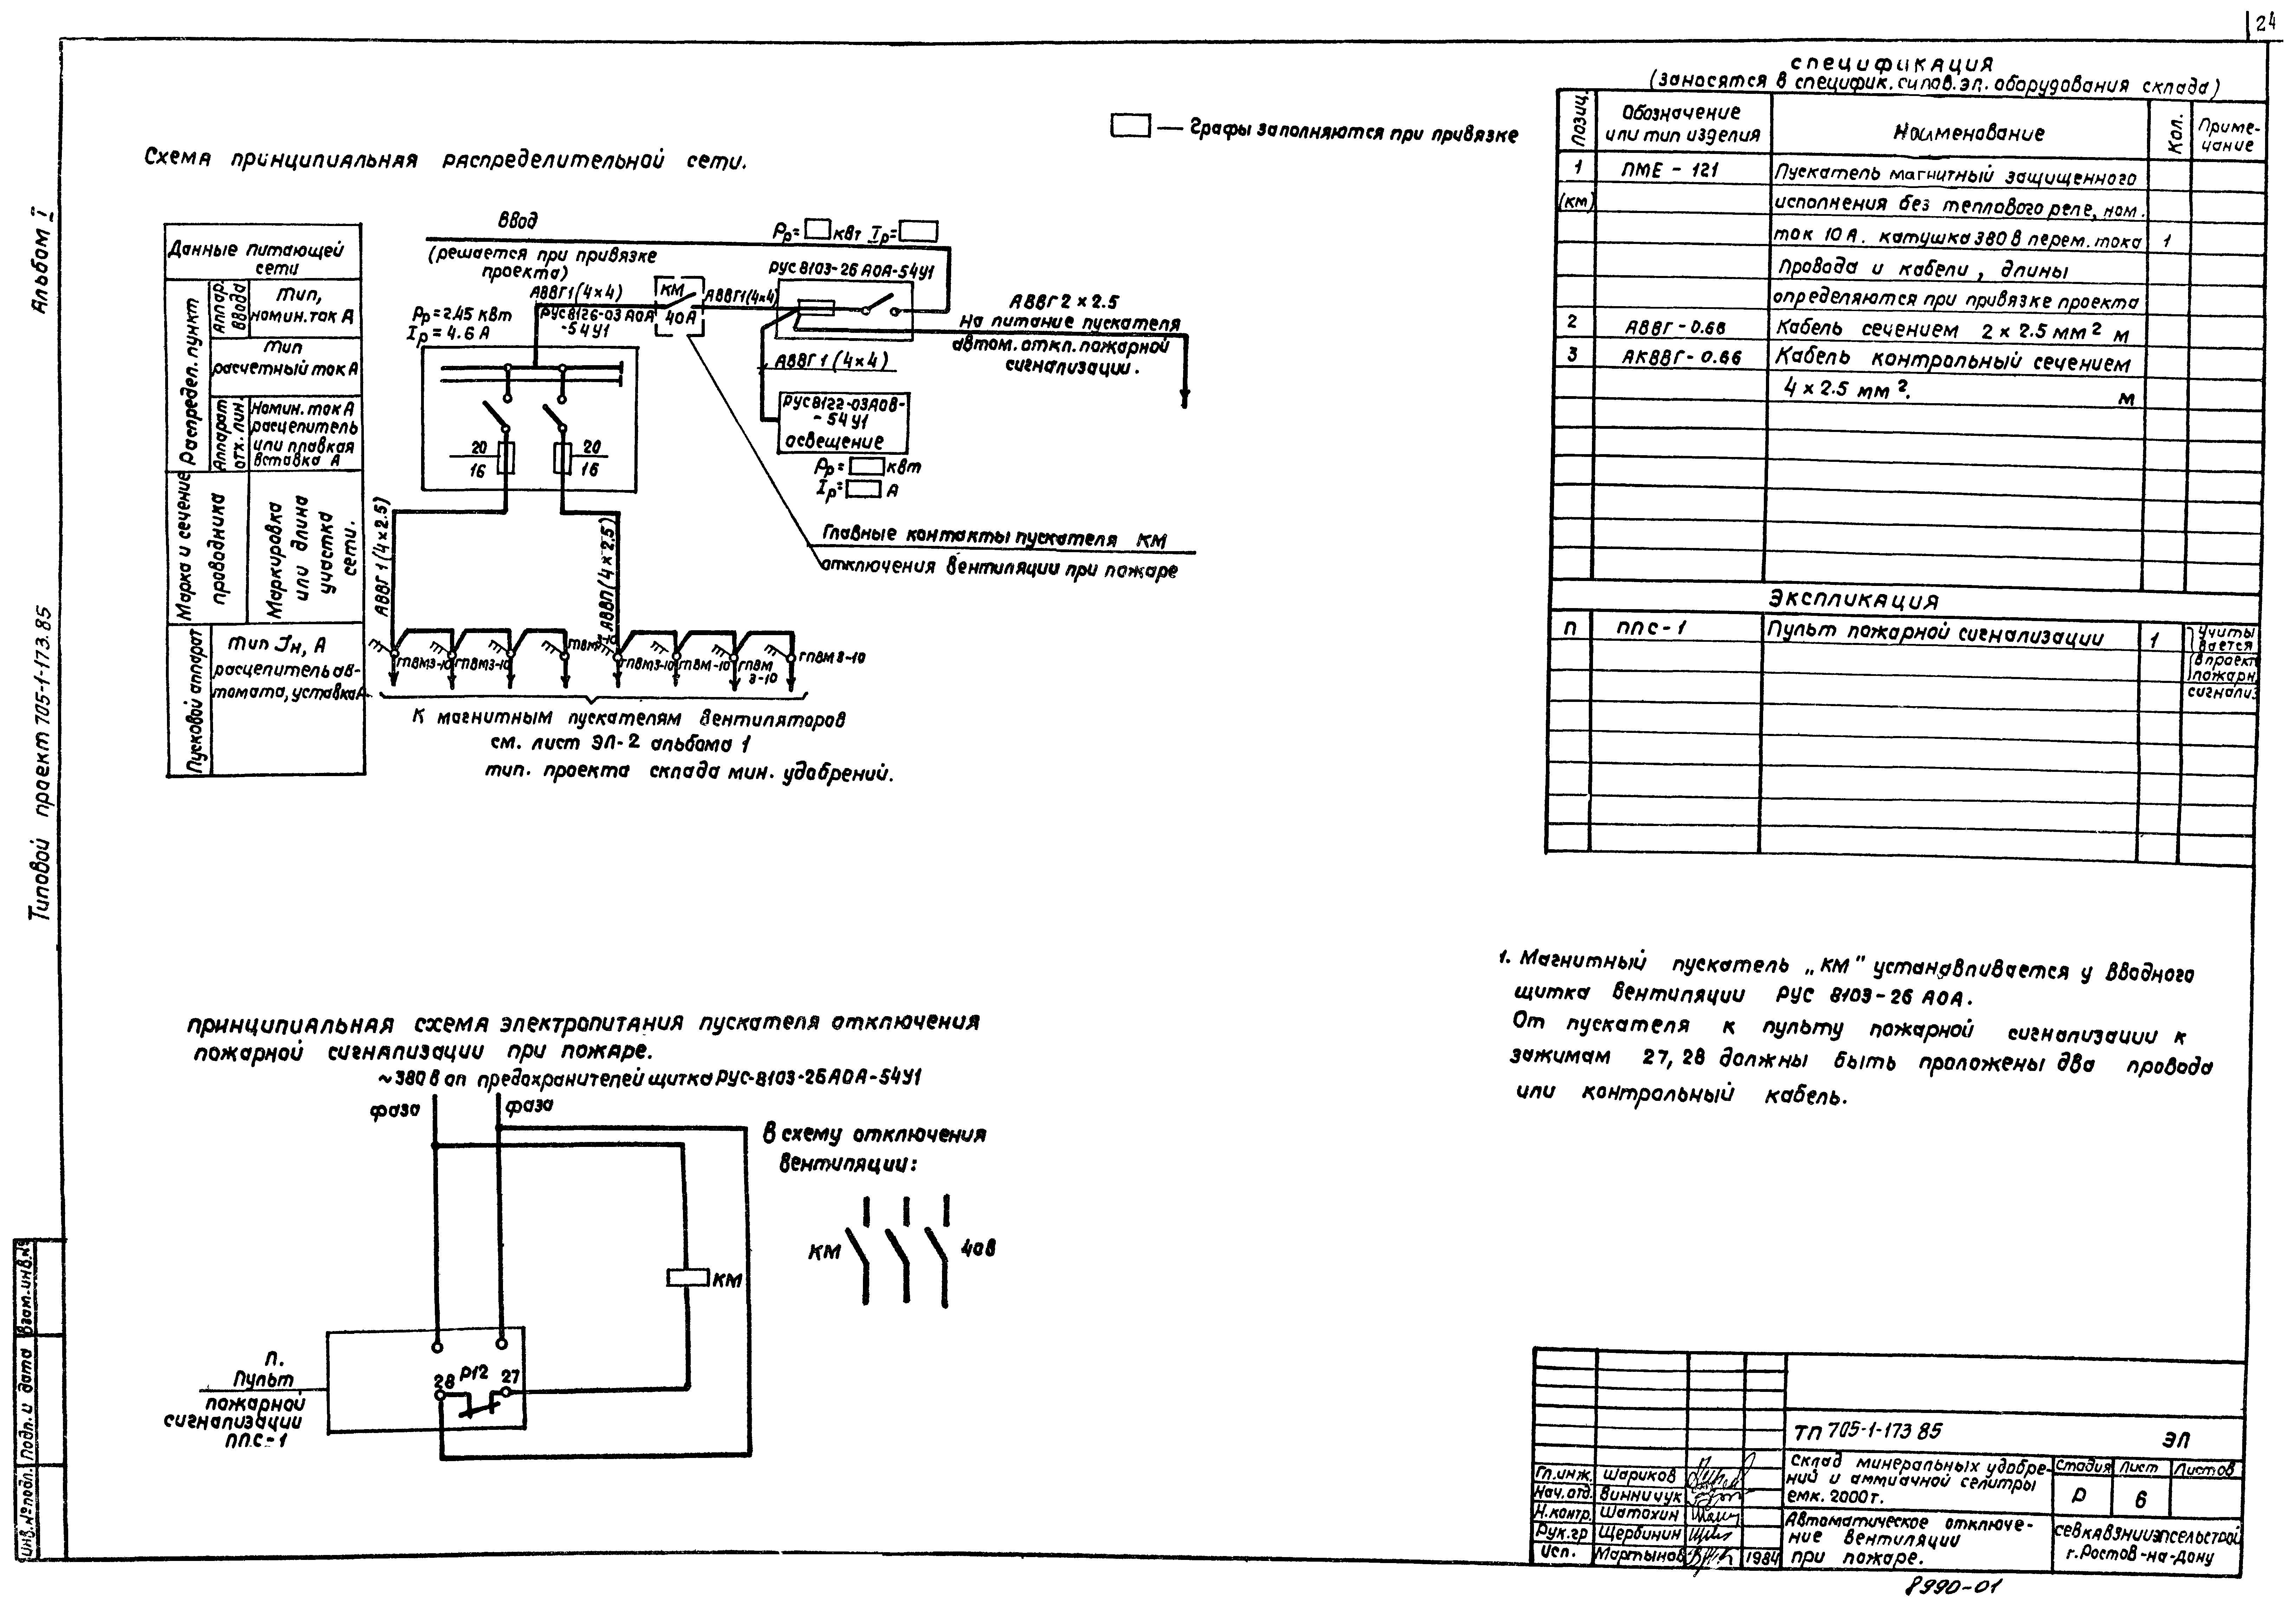 24
Альбом I
Типовой проект 705-1-173.85
Схема принципиальная распределительной сети.
— Графы заполняются при привязке
Данные питающей
сети
Распредел. пункт
Аппар.
ввода
Тип,
номин. ток А
Тип
расчетный ток А
Аппарат
отх. лин.
Номин. ток А
расцепитель
или плавкая
вставка А
Марка и сечение
проводника
Маркировка
или длина
участка
сети.
Пусковой аппарат
Тип Jн, А
расцепитель ав-
томата, уставка А
Ввод
(решается при привязке
проекта)
Рр= квт Iр=
РУС 8103-26 А0А-54У1
АВВГ1(4×4)
КМ
40А
АВВГ1(4×4)
Рр=2.45 квт
Iр=4.6 А
РУС8126-03 А0А
-54У1
АВВГ 2×2.5
На питание пускателя
автом. откл. пожарной
сигнализации.
АВВГ 1 (4×4)
РУС8122-03А0В-
-54У1
освещение
Рр= квт
Iр= А
20
16
20
16
АВВГ 1 (4×2.5)
АВВГ1(4×2.5)
Главные контакты пускателя КМ
отключения вентиляции при пожаре
ГПВМ3-10
ГПВМ3-10
ГПВМ3-10
ГПВМ-10
ГПВМ
3-10
ГПВМ3-10
К магнитным пускателям вентиляторов
см. лист ЭЛ-2 альбома 1
тип. проекта склада мин. удобрений.
принципиальная схема электропитания пускателя отключения
пожарной сигнализации при пожаре.
~380в от предохранителей щитка РУС-8103-26А0А-54У1
фаза
фаза
В схему отключения
вентиляции:
КМ
40В
КМ
п.
Пульт
пожарной
сигнализации
ППС-1
28
Р12
27
спецификация
(заносятся в специфик. силов. эл. оборудования склада)
Позиц.
Обозначение
или тип изделия
Наименование
Кол.
Приме-
чание
1
ПМЕ - 121
Пускатель магнитный защищенного
(км)
исполнения без теплового реле, ном.
ток 10 А. катушка 380 в перем. тока
1
Провода и кабели, длины
определяются при привязке проекта
2
АВВГ-0.66
Кабель сечением 2×2.5 мм² м
3
АКВВГ-0.66
Кабель контрольный сечением
4×2.5 мм². м
экспликация
п
ППС-1
Пульт пожарной сигнализации
1
учиты
вается
в проект
пожарн.
сигнализ
1. Магнитный пускатель „КМ" устанавливается у вводного
щитка вентиляции РУС 8103-26 А0А.
От пускателя к пульту пожарной сигнализации к
зажимам 27, 28 должны быть проложены два провода
или контрольный кабель.
ТП 705-1-173 85
ЭЛ
Склад минеральных удобре-
ний и аммиачной селитры
емк. 2000т.
Стадия
Лист
Листов
Р
6
Автоматическое отключе-
ние вентиляции
при пожаре.
севкавзнииэпсельстрой
г. Ростов-на-дону
Гл.инж. Шариков
Нач.отд. Винничук
Н.контр. Шатохин
Рук.гр Щербинин
Исп. Мартынов 1984
Инв.№подл.
Подп. и дата
Взам.инв.№
8990-01